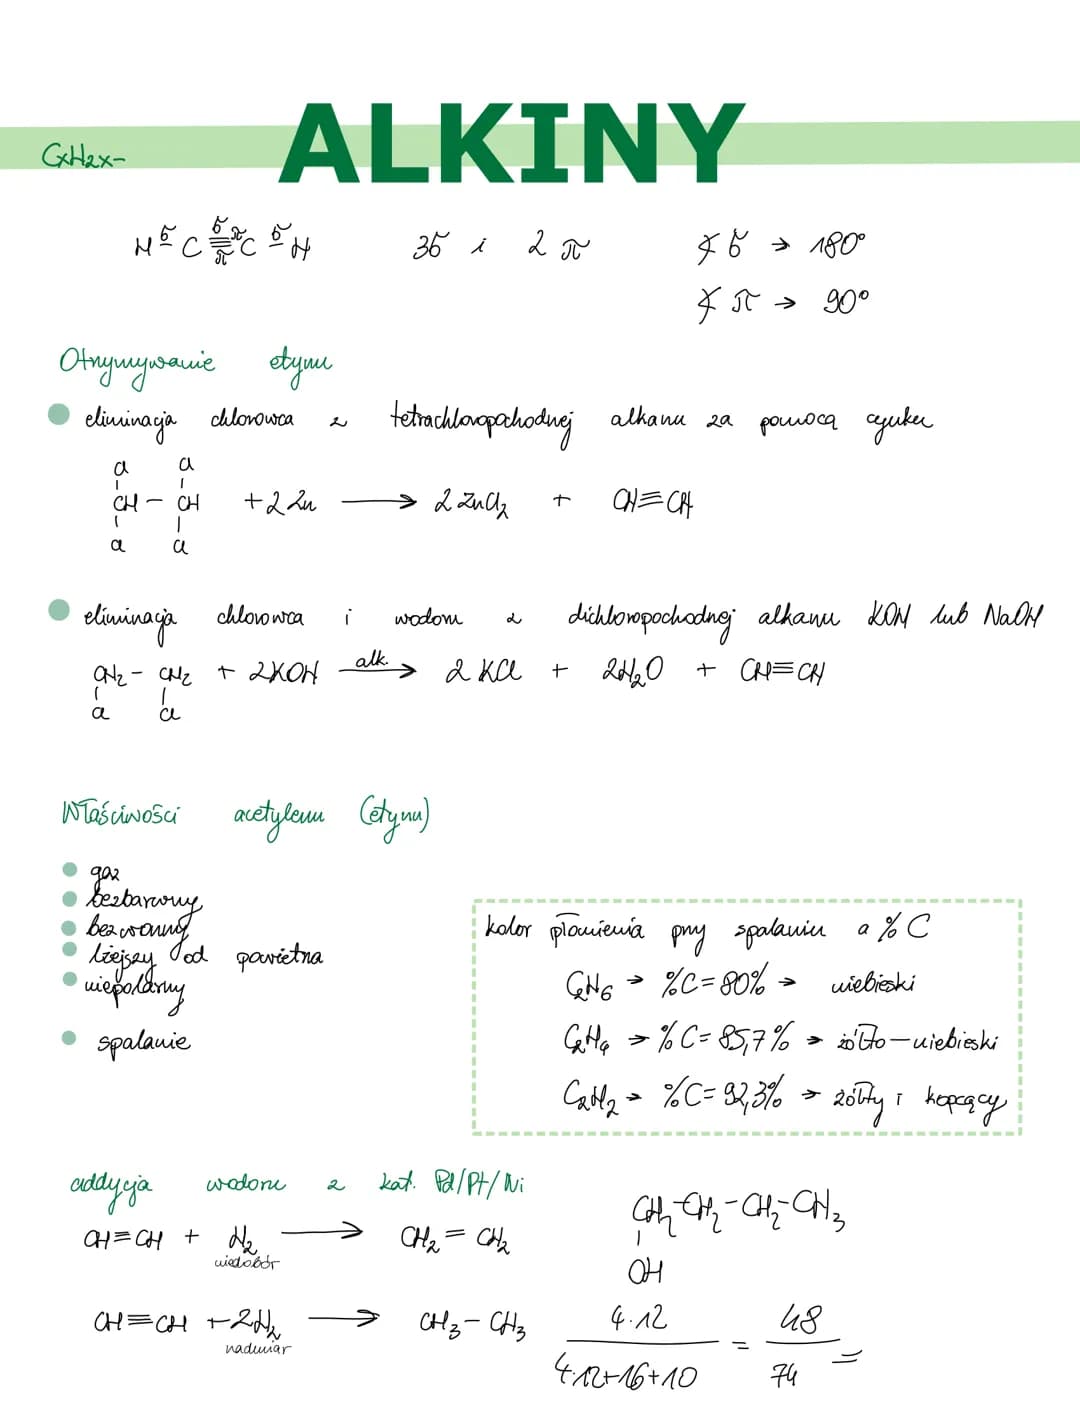 ALKINY
CxH2x-
H σ C σ π ≡ π C σ H 3σ i 2 π ∡ σ → 180°
∡ π → 90°
Otrzymywanie etynu
eliminacja chlorowca z tetrachloropochodnej alkanu za pomocą cynku
Cl Cl
CH - CH + 2 Zn → 2 ZnCl2 + CH≡CH
Cl Cl
eliminacja chlorowca i wodoru z dichloropochodnej alkanu KOH lub NaOH
CH2 - CH2 + 2KOH alk. → 2 KCl + 2H2O + CH≡CH
Cl Cl
Właściwości acetylenu (etynu)
gaz
bezbarwny
bezwonny
lżejszy od powietrza
niepolarny
spalanie
kolor płomienia przy spalaniu a % C
C2H6 → %C = 80% → niebieski
C2H4 → %C = 85,7% → żółto-niebieski
C2H2 → %C = 92,3% → żółty i kopcący
addycja wodoru z kat. Pd/Pt/Ni
CH≡CH + H2 → CH2 = CH2
niedobór
CH≡CH + 2H2 → CH3 - CH3
nadmiar
CH2-CH2-CH2-CH3
OH
4·12 48
= =
4·12+16+10 74